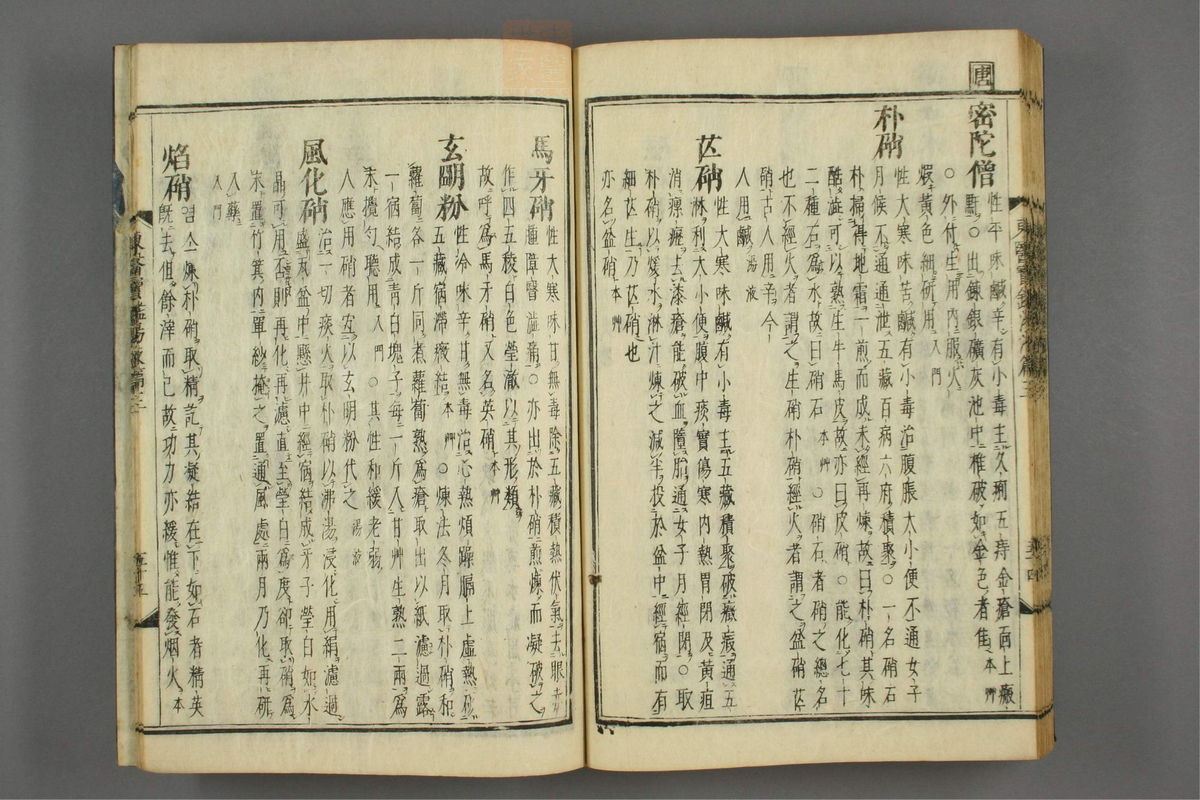 唐
密陀僧
性平味鹹辛有小毒主久痢五痔金瘡面上瘢
䵟○出鍊銀礦灰池中椎破如金色者佳本草
○外付生用內服火
煅黃色細研用入門
朴硝
性大寒味苦鹹有小毒治腹脹大小便不通女子
月候不通通泄五藏百病六府積聚○一名硝石
朴掃得地霜一煎而成未經再煉故曰朴硝其味
酷澁可以熟生牛馬皮故亦曰皮硝○能化七十
二種石爲水故曰硝石本草○硝石者硝之總名
也不經火者謂之生硝朴硝經火者謂之盆硝芒
硝古人用辛今
人用鹹湯液
芒硝
性大寒味鹹有小毒主五藏積聚破癥瘕通五
淋利大小便腹中痰實傷寒內熱胃閉及黃疸
消瘰癧去漆瘡能破血墮胎通女子月經閉○取
朴硝以煖水淋汁煉之減半投於盆中經宿而有
細芒生乃芒硝也
亦名盆硝本草
馬牙硝
性大寒味甘無毒除五藏積熱伏氣去眼赤
腫障瞖澁痛○亦出於朴硝煎煉而凝破之
作四五稜白色瑩澈以其形類
故呼爲馬牙硝又名英硝本草
玄明粉
性冷味辛甘無毒治心熱煩躁膈上虛熱破
五藏宿滯癥結本草○煉法冬月取朴硝和
蘿蔔各一斤同煮蘿蔔熟爲度取出以紙濾過露
一宿結成青白塊子每一斤入甘草生熟二兩爲
末攪勻聽用入門○其性和緩老弱
人應用硝者宜以玄明粉代之湯液
風化硝
治一切痰火取朴硝以沸湯浸化用絹濾過
盛瓦盆中懸井中經宿結成牙子瑩白如水
晶可用否則再化再濾直至瑩白爲度却取硝爲
末置竹箕內單紗掩之置通風處兩月乃化再硏
入藥
入門
焰硝
自今煉朴硝取精訖其凝結在下如石者精英
旣去但餘滓而已故功力亦緩惟能發烟火本
東醫寶鑑湯液篇三
東醫寶鑑湯液篇三